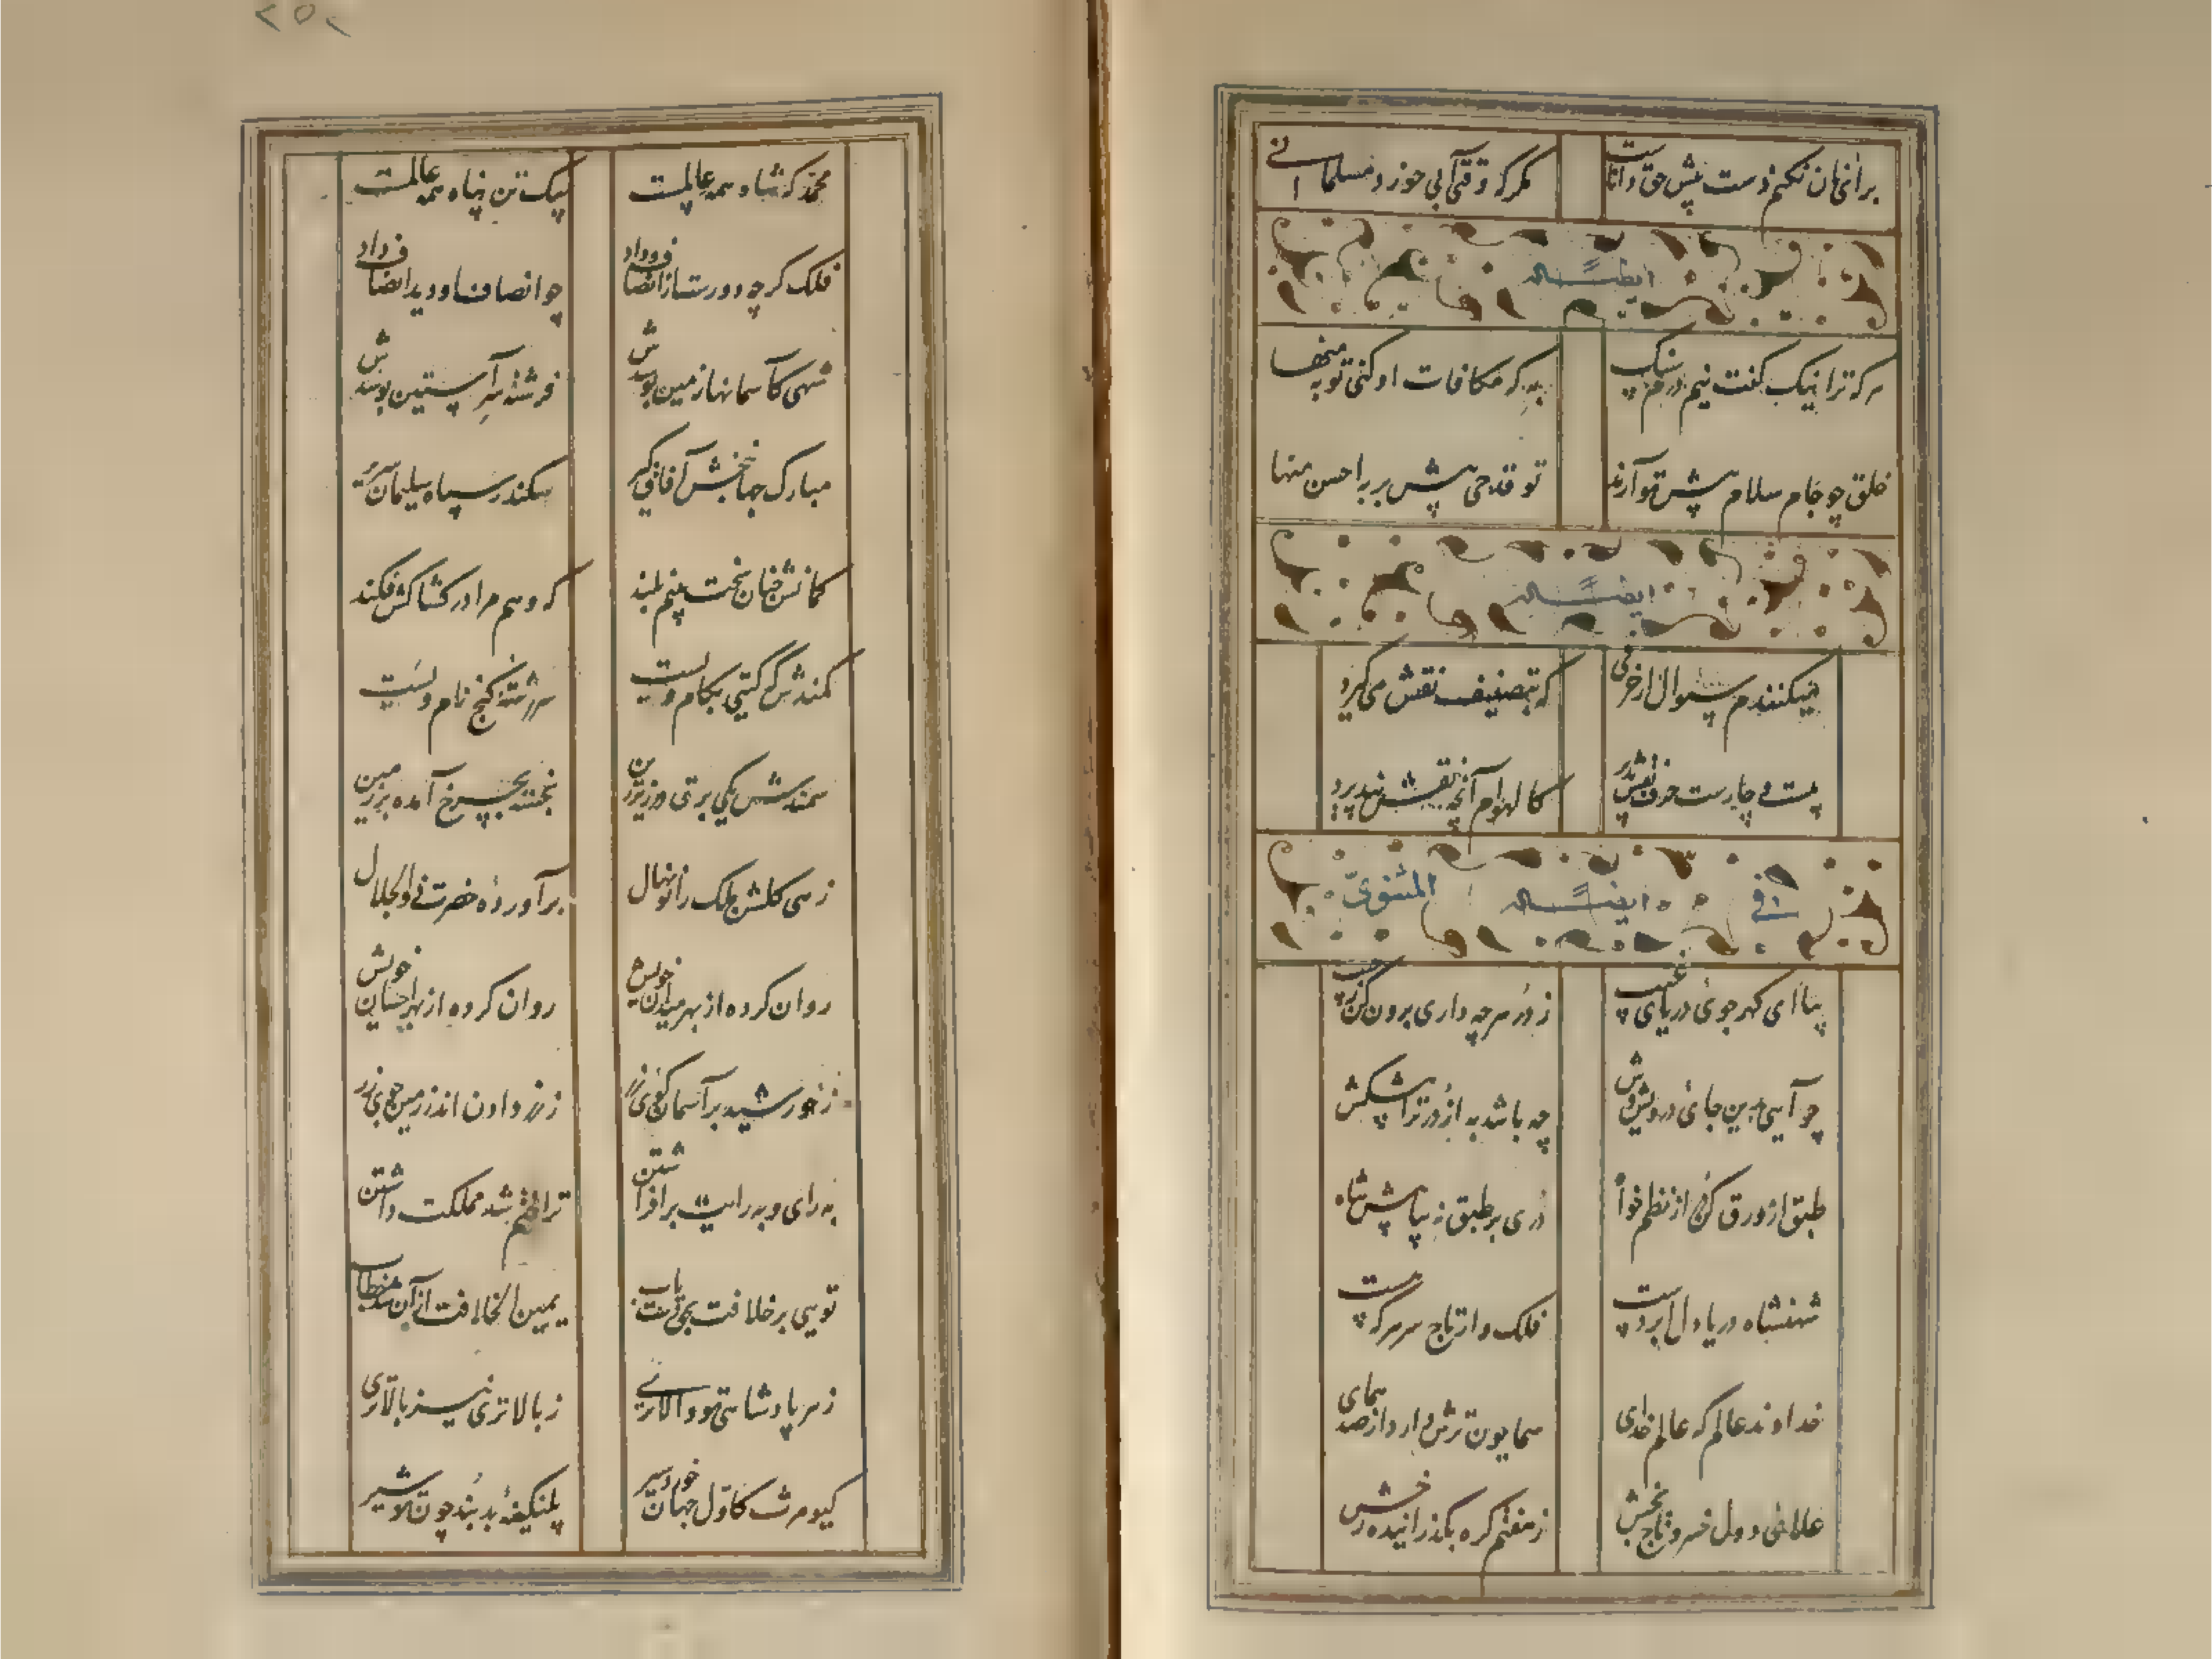 مگر که وقتی آبی خورد مسلمانی
ایضاً له
هر که ترا نیک گفت نیم درم سنگ
به که مکافات او کنی تو به منها
خلق چو جام سلام پیش تو آرند
تو قدحی پیش بر به احسن منها
ایضاً له
میکنندم سوال از حرفی
که بتصنیف نقش می گیرد
بیست و چارست حرف نقش پذیر
کالهوام آنچه نقش نپذیرد
ایضاً له فی المثنوی
بیا ای گهر جوی دریای غیب
ز در هر چه داری برون کن ز جیب
چو آیی درین جای درویش وش
چه باشد به از در ترا پیشکش
طبق از ورق کن از نظم خواه
دری بر طبق نه بیا پیش شاه
شهنشاه دریا دل ابر دست
فلک را ز تاج سر هر که هست
خداوند عالم که عالم خدای
همایون ترش دارد از صد همای
علای دول خسرو تاج بخش
ز هفتم کره بگذرانیده رخش
محمد که شاه همه عالمست
بیک تن پناه همه عالمست
فلک گر چه دورست از انصاف و داد
چو انصاف او دید انصاف داد
شهی کآسمانها زمین بوسدش
فرشته سر آستین بوسدش
مبارک جهانبخش آفاق گیر
سکندر سپاه سلیمان سریر
کمانش چنان سخت بینم بلند
که وهم مرا در کشاکش فکند
کمندش که گیتی بکام ویست
سر رشته گنج نام ویست
سمندش یکی برق وزین
بجنبد بچرخ آمده بر زمین
زهی گلشن ملک را نو نهال
برآورده حضرت ذو الجلال
روان کرده از بهر میدان خویش
روان کرده از بهر احسان خویش
ز خورشید بر آسمان گوی زر
ز زر دادن اندر زمین جوی زر
به رای و به رایت برافراشتن
ترا ختم شد مملکت داشتن
تویی بر خلافت بحق دست یاب
یمین الخلافت از آن شد خطاب
ز هر پادشاهی تو والاتری
ز بالاتری نیز بالاتری
کیومرث کاول جهان خورد سیر
پلنگینه بد بند چون تو شیر